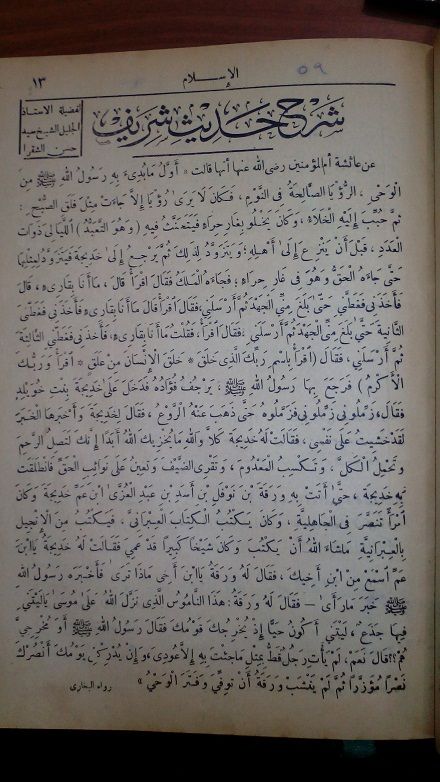 ١٣
الإسلام
٥٩
شرح حديث شريف
لفضيلة الاستاذ
الجليل الشيخ سيد
حسن الشقرا
عن عائشة أم المؤمنين رضي الله عنها أنها قالت « أَوَّلُ مَا بُدِىءَ بِهِ رَسُولُ اللهِ ﷺ مِن
الْوَحْىِ ، الرُّؤْيَا الصَّالِحَةُ فِى النَّوْمِ ، فَكَانَ لَا يَرَى رُؤْيَا إِلَّا جَاءَتْ مِثْلَ فَلَقِ الصُّبْحِ :
ثُمَّ حُبِّبَ إِلَيْهِ الْخَلَاءُ ، وَكَانَ يَخْلُو بِغَارِ حِرَاءٍ فَيَتَحَنَّثُ فِيهِ ( وَهُوَ التَّعَبُّدُ ) اللَّيَالِىَ ذَوَاتِ
الْعَدَدِ ، قَبْلَ أَنْ يَنْزِعَ إِلَى أَهْلِهِ ؛ وَيَتَزَوَّدُ لِذَلِكَ ثُمَّ يَرْجِعُ إِلَى خَدِيجَةَ فَيَتَزَوَّدُ لِمِثْلِهَا
حَتَّى جَاءَهُ الْحَقُّ وَهُوَ فِى غَارِ حِرَاءٍ؛ فَجَاءَهُ الْمَلَكُ فَقَالَ اقْرَأْ قَالَ ، مَا أَنَا بِقَارِىءٍ ، قَالَ
فَأَخَذَنِى فَغَطَّنِى حَتَّى بَلَغَ مِنِّى الْجَهْدَ ثُمَّ أَرْسَلَنِى فَقَالَ اقْرَأْ قَالَ مَا أَنَا بِقَارِىءٍ فَأَخَذَنِى فَغَطَّنِى
الثَّانِيَةَ حَتَّى بَلَغَ مِنِّى الْجَهْدَ ثُمَّ أَرْسَلَنِى ، فَقَالَ اقْرَأْ ، فَقُلْتُ مَا أَنَا بِقَارِىءٍ ، فَأَخَذَنِى فَغَطَّنِى الثَّالِثَةَ
ثُمَّ أَرْسَلَنِى ، فَقَالَ ( اقْرَأْ بِاسْمِ رَبِّكَ الَّذِى خَلَقَ * خَلَقَ الْإِنْسَانَ مِنْ عَلَقٍ * اقْرَأْ وَرَبُّكَ
الْأَكْرَمُ ) فَرَجَعَ بِهَا رَسُولُ اللهِ ﷺ ، يَرْجُفُ فُؤَادُهُ فَدَخَلَ عَلَى خَدِيجَةَ بِنْتِ خُوَيْلِدٍ
فقال ، زَمِّلُونِى زَمِّلُونِى فَزَمَّلُوهُ حَتَّى ذَهَبَ عَنْهُ الرَّوْعُ ، فَقَالَ لِخَدِيجَةَ وَأَخْبَرَهَا الْخَبَرَ
لَقَدْ خَشِيتُ عَلَى نَفْسِى ، فَقَالَتْ لَهُ خَدِيجَةُ كَلَّا وَاللهِ مَا يُخْزِيكَ اللهُ أَبَدًا إِنَّكَ لَتَصِلُ الرَّحِمَ
وَتَحْمِلُ الْكَلَّ ، وَتَكْسِبُ الْمَعْدُومَ ، وَتَقْرِى الضَّيْفَ وَتُعِينُ عَلَى نَوَائِبِ الْحَقِّ فَانْطَلَقَتْ
بِهِ خَدِيجَةُ ، حَتَّى أَتَتْ بِهِ وَرَقَةَ بْنَ نَوْفَلِ بْنِ أَسَدِ بْنِ عَبْدِ الْعُزَّى ابْنَ عَمِّ خَدِيجَةَ وَكَانَ
امْرَأً تَنَصَّرَ فِى الْجَاهِلِيَّةِ ، وَكَانَ يَكْتُبُ الْكِتَابَ الْعِبْرَانِىَّ ، فَيَكْتُبُ مِنَ الْإِنْجِيلِ
بِالْعِبْرَانِيَّةِ مَا شَاءَ اللهُ أَنْ يَكْتُبَ وَكَانَ شَيْخًا كَبِيرًا قَدْ عَمِىَ فَقَالَتْ لَهُ خَدِيجَةُ يَا ابْنَ
عَمِّ اسْمَعْ مِنَ ابْنِ أَخِيكَ ، فَقَالَ لَهُ وَرَقَةُ يَا ابْنَ أَخِى مَاذَا تَرَى فَأَخْبَرَهُ رَسُولُ اللهِ
ﷺ خَبَرَ مَا رَأَى – فَقَالَ لَهُ وَرَقَةُ : هَذَا النَّامُوسُ الَّذِى نَزَّلَ اللهُ عَلَى مُوسَى يَا لَيْتَنِى
فِيهَا جَذَعٌ ، لَيْتَنِى أَكُونُ حَيًّا إِذْ يُخْرِجُكَ قَوْمُكَ فَقَالَ رَسُولُ اللهِ ﷺ أَوَ مُخْرِجِىَّ
هُمْ ؟؟ قَالَ نَعَمْ ، لَمْ يَأْتِ رَجُلٌ قَطُّ بِمِثْلِ مَا جِئْتَ بِهِ إِلَّا عُودِىَ ، وَإِنْ يُدْرِكْنِى يَوْمُكَ أَنْصُرْكَ
نَصْرًا مُؤَزَّرًا ثُمَّ لَمْ يَنْشَبْ وَرَقَةُ أَنْ تُوُفِّىَ وَفَتَرَ الْوَحْىُ »
رواه البخارى